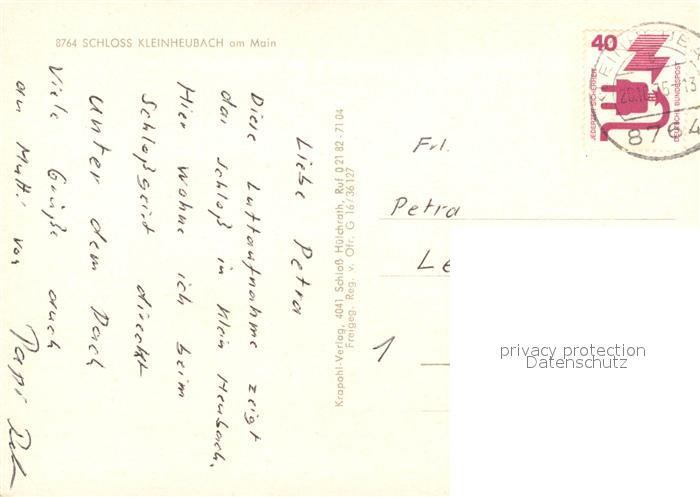 8764 SCHLOSS KLEINHEUBACH am Main
Liebe Petra
Diese Luftaufnahme zeigt
das Schloß in Klein Heubach.
Hier wohne ich beim
Schloßgeist direkt
unter dem Dach
Viele Grüße auch
an Mutti von Papi
Krapohl-Verlag, 4041 Schloß Hülchrath, Ruf 0 21 82 - 71 04
Freigeg. Reg. v. Ofr. G 16/36 127
40
JEDERZEIT SICHERHEIT
DEUTSCHE BUNDESPOST
8764
Frl.
Petra
Le
1
privacy protection
Datenschutz